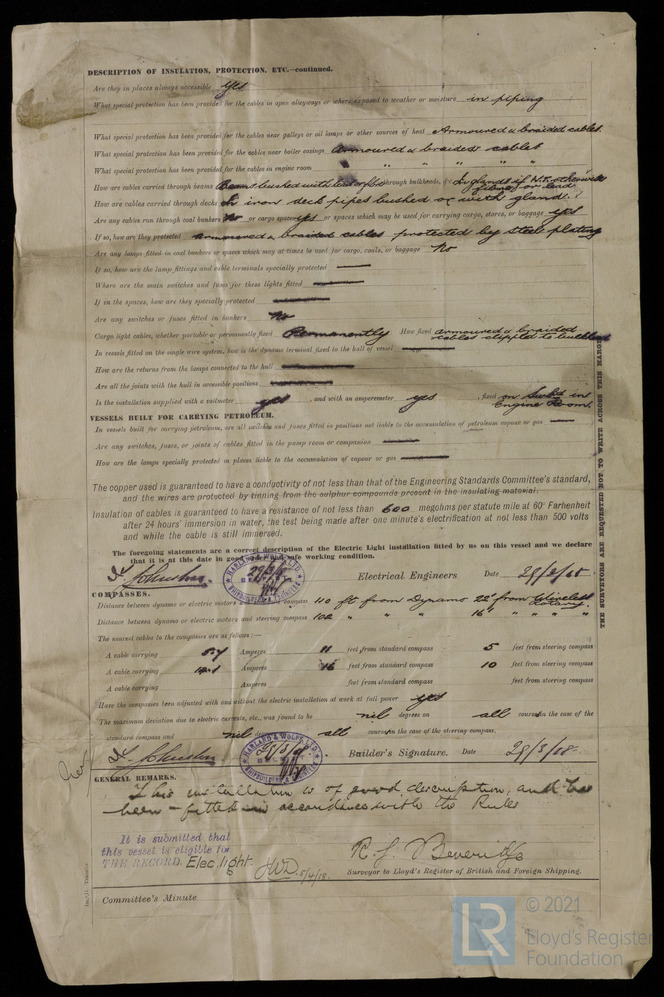 DESCRIPTION OF INSULATION, PROTECTION, ETC.—continued.
Are they in places always accessible yes
What special protection has been provided for the cables in open alleyways or where exposed to weather or moisture in piping
What special protection has been provided for the cables near galleys or oil lamps or other sources of heat Armoured & braided cables.
What special protection has been provided for the cables near boiler casings Armoured & braided cables
What special protection has been provided for the cables in engine room " " " " "
How are cables carried through beams Beams bushed with lead or fibre through bulkheads, &c. In glands if W.T. otherwise
fibre or lead
How are cables carried through decks In iron deck pipes bushed or with gland.
Are any cables run through coal bunkers No or cargo spaces yes or spaces which may be used for carrying cargo, stores, or baggage yes
If so, how are they protected Armoured & braided cables protected by steel plating
Are any lamps fitted in coal bunkers or spaces which may at times be used for cargo, coals, or baggage No
If so, how are the lamp fittings and cable terminals specially protected
Where are the main switches and fuses for these lights fitted
If in the spaces, how are they specially protected
Are any switches or fuses fitted in bunkers No
Cargo light cables, whether portable or permanently fixed Permanently How fixed armoured & braided
cables clipped to bulkhead
In vessels fitted on the single wire system, how is the dynamo terminal fixed to the hull of vessel
How are the returns from the lamps connected to the hull
Are all the joints with the hull in accessible positions
Is the installation supplied with a voltmeter yes , and with an amperemeter yes , fixed on Swbd in
Engine Room.
VESSELS BUILT FOR CARRYING PETROLEUM.
In vessels built for carrying petroleum, are all switches and fuses fitted in positions not liable to the accumulation of petroleum vapour or gas
Are any switches, fuses, or joints of cables fitted in the pump room or companion
How are the lamps specially protected in places liable to the accumulation of vapour or gas
The copper used is guaranteed to have a conductivity of not less than that of the Engineering Standards Committee's standard,
and the wires are protected by tinning from the sulphur compounds present in the insulating material.
Insulation of cables is guaranteed to have a resistance of not less than 600 megohms per statute mile at 60° Farhenheit
after 24 hours' immersion in water, the test being made after one minute's electrification at not less than 500 volts
and while the cable is still immersed.
The foregoing statements are a correct description of the Electric Light installation fitted by us on this vessel and we declare
that it is at this date in good order and safe working condition.
HARLAND & WOLFF, LTD.
SHIPBUILDING & ENGINEERS
Electrical Engineers Date
COMPASSES.
Distance between dynamo or electric motors and standard compass 110 ft from Dynamo 22' from Wireless
Rotary.
Distance between dynamo or electric motors and steering compass 102 " " " 16' " " "
The nearest cables to the compasses are as follows:—
A cable carrying Amperes 11 feet from standard compass 5 feet from steering compass
A cable carrying Amperes 16 feet from standard compass 10 feet from steering compass
A cable carrying Amperes feet from standard compass feet from steering compass
Have the compasses been adjusted with and without the electric installation at work at full power yes
The maximum deviation due to electric currents, etc., was found to be nil degrees on all courses in the case of the
standard compass and nil degrees on all courses in the case of the steering compass.
HARLAND & WOLFF, LTD.
SHIPBUILDING & ENGINEERS
Builder's Signature. Date 28/3/18.
GENERAL REMARKS.
This installation is of good description, and has
been fitted in accordance with the Rules
It is submitted that
this vessel is eligible for
THE RECORD. Elec. light.
JWD. 5/4/18.
R. J. Beveridge
Surveyor to Lloyd's Register of British and Foreign Shipping.
Committee's Minute
THE SURVEYORS ARE REQUESTED NOT TO WRITE ACROSS THIS MARGIN
LR
© 2021
Lloyd's Register
Foundation